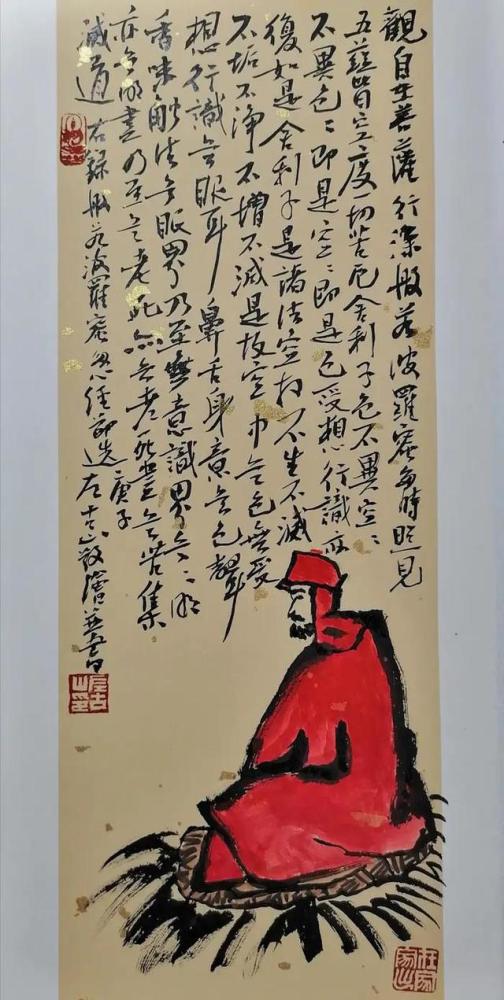 觀自在菩薩行深般若波羅蜜多時照見
五蘊皆空度一切苦厄舍利子色不異空〻
不異色〻即是空〻即是色受想行識亦
復如是舍利子是諸法空相不生不滅
不垢不淨不增不減是故空中无色無受
想行識无眼耳鼻舌身意无色聲
香味觸法无眼界乃至無意識界无〻明
亦无明盡乃至无老死亦无老死盡无苦集
滅道 右錄般若波羅蜜多心經節選
庚子
敬繪並書